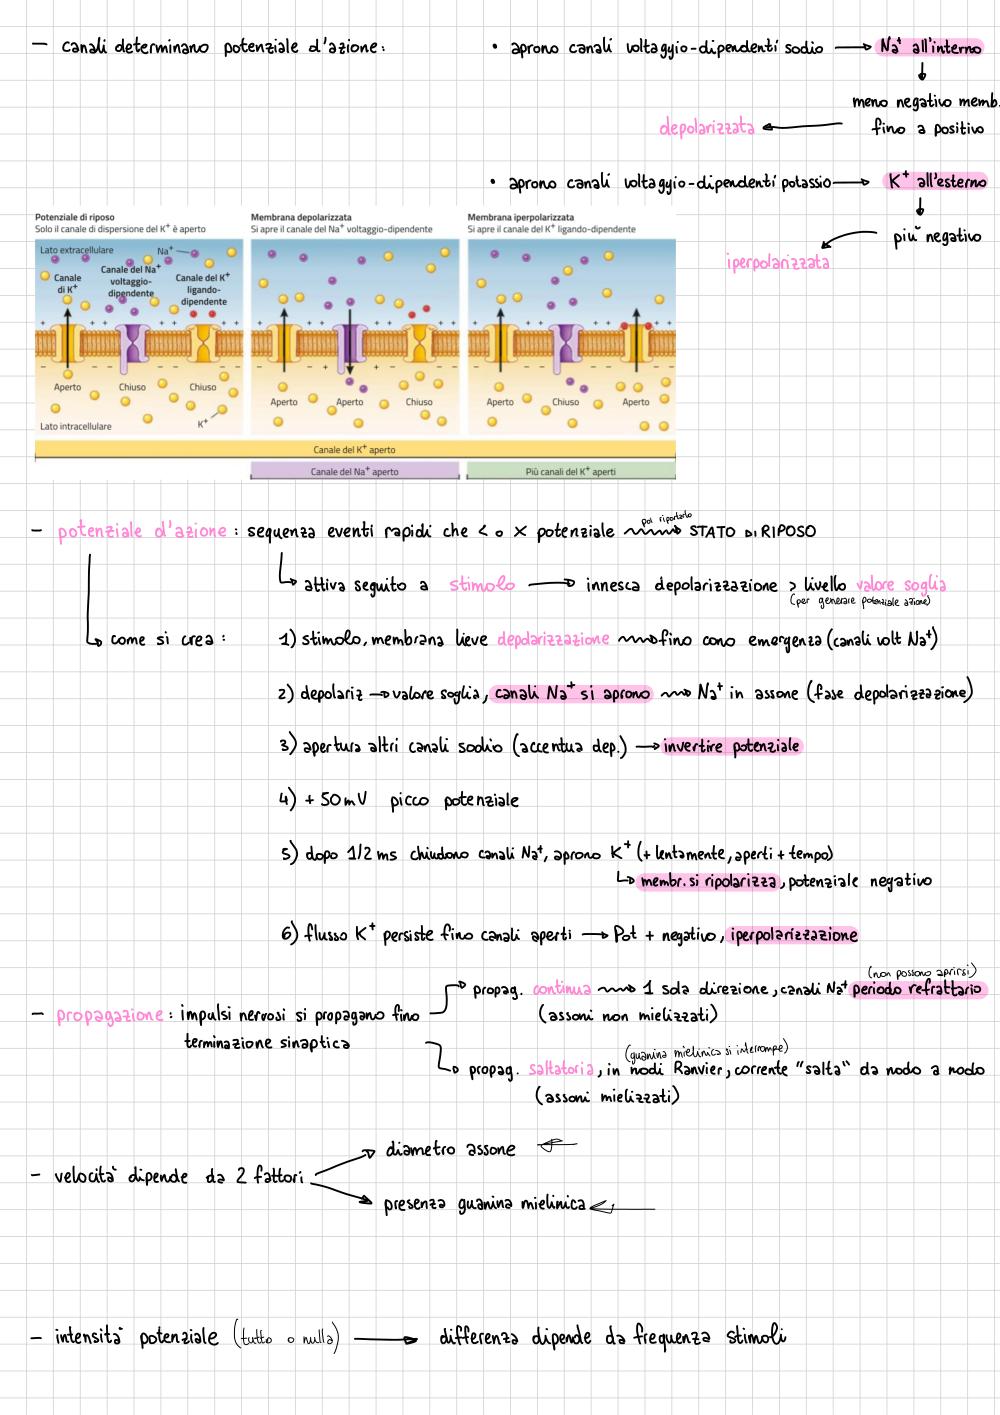 – canali determinano potenziale d'azione:
• aprono canali voltaggyio-dipendenti sodio → Na⁺ all'interno
meno negativo memb.
fino a positivo
depolarizzata
• aprono canali voltaggyio-dipendenti potassio → K⁺ all'esterno
più negativo
iperpolarizzata
Potenziale di riposo
Solo il canale di dispersione del K⁺ è aperto
Lato extracellulare
Na⁺
Canale di K⁺
Canale del Na⁺ voltaggio-dipendente
Canale del K⁺ ligando-dipendente
Aperto Chiuso Chiuso
K⁺
Lato intracellulare
Membrana depolarizzata
Si apre il canale del Na⁺ voltaggio-dipendente
Aperto Aperto Chiuso
Membrana iperpolarizzata
Si apre il canale del K⁺ ligando-dipendente
Aperto Chiuso Aperto
Canale del K⁺ aperto
Canale del Na⁺ aperto
Più canali del K⁺ aperti
– potenziale d'azione: sequenza eventi rapidi che < o × potenziale poi riportato STATO DI RIPOSO
attiva seguito a stimolo → innesca depolarizzazione > livello valore soglia
(per generare potenziale azione)
come si crea:
1) stimolo, membrana lieve depolarizzazione fino cono emergenza (canali volt Na⁺)
2) depolariz → valore soglia, canali Na⁺ si aprono Na⁺ in assone (fase depolarizzazione)
3) apertura altri canali sodio (accentua dep.) → invertire potenziale
4) + 50 mV picco potenziale
5) dopo 1/2 ms chiudono canali Na⁺, aprono K⁺ (+ lentamente, aperti + tempo)
membr. si ripolarizza, potenziale negativo
6) flusso K⁺ persiste fino canali aperti → Pot + negativo, iperpolarizzazione
– propagazione: impulsi nervosi si propagano fino
terminazione sinaptica
(non possono aprirsi)
propag. continua 1 sola direzione, canali Na⁺ periodo refrattario
(assoni non mielizzati)
(guanina mielinica si interrompe)
propag. saltatoria, in nodi Ranvier, corrente "salta" da nodo a nodo
(assoni mielizzati)
– velocità dipende da 2 fattori
diametro assone
presenza guanina mielinica
– intensità potenziale (tutto o nulla) → differenza dipende da frequenza stimoli